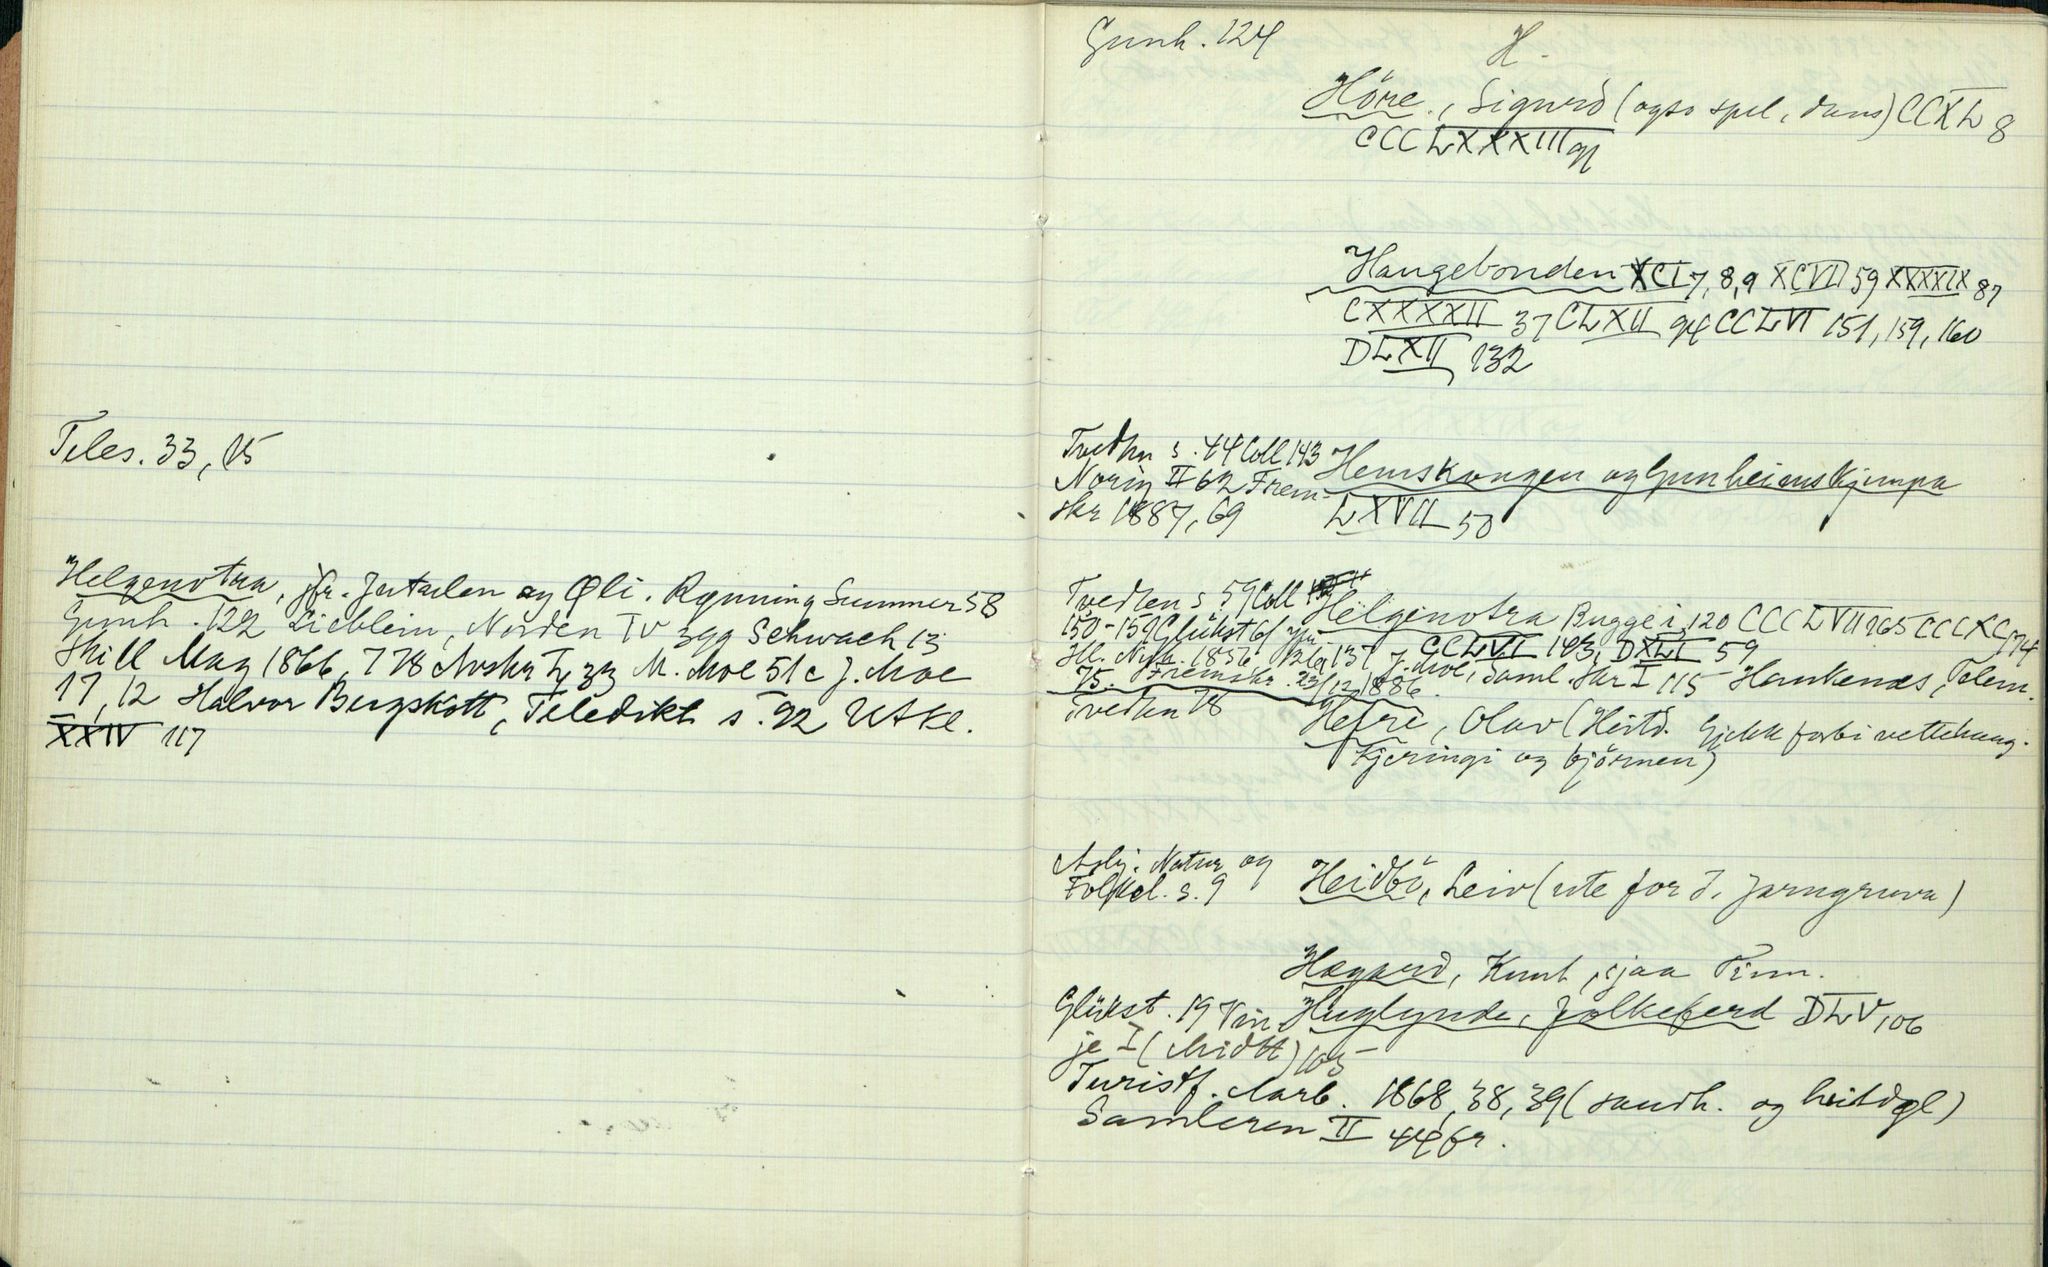 Teles. 33, 15
Helgenotra, jfr. Jutulen og Øli. Rynning Summer 58
Gunh. 122 Lieblein, Norden IV 399 Schwach 13
Skill Mag 1866, 778 M. Moe 51c J. Moe
17, 12 Halvor Bergskott, Teledikt s. 92 Utkl.
XXIV 117
Gunh. 124
H.
Höre, Sigurd (ogso spel, dans) CCXL 8
CCCLXXXIII 91
Haugebonden XCI 7, 8, 9 XCVI 59 XXXXIX 87
CXXXXII 37 CLXII 94 CCLVI 151, 159, 160
DLXII 132
Tvedten s. 44 Coll 143
Norig II 62 Frem-
skr 1887, 69
Hemskongen og Gunheimskjempa
LXVII 50
Tvedten s. 59 Coll
150-159 Glükst 61
Ill. Nyh. 1856 137 J. Moe, Saml. Skr I 115 Haukenæs, Telem.
75. Fremskr. 23/12 1886.
Tvedten 78
Helgenotra Bugge i, 120 CCCLVII 265 CCCXC 174
CCLVI 143, DXLI 59
Hefre, Olav (Heitd. Gjekk forbi vettehaug.
Kjeringi og björnen)
Asbj. Natur og
Folkel. s. 9
Heidbö, Leiv (ute for d. Jarngruva)
Hægard, Knut, sjaa Finn.
Glükst. 19 Vin-
je I (Midtt) 105
Huglynde, folkeferd DLV 106
Turistf. Aarb. 1868, 38, 39 (sandh. og heitdøl)
Samleren II 44 fr.